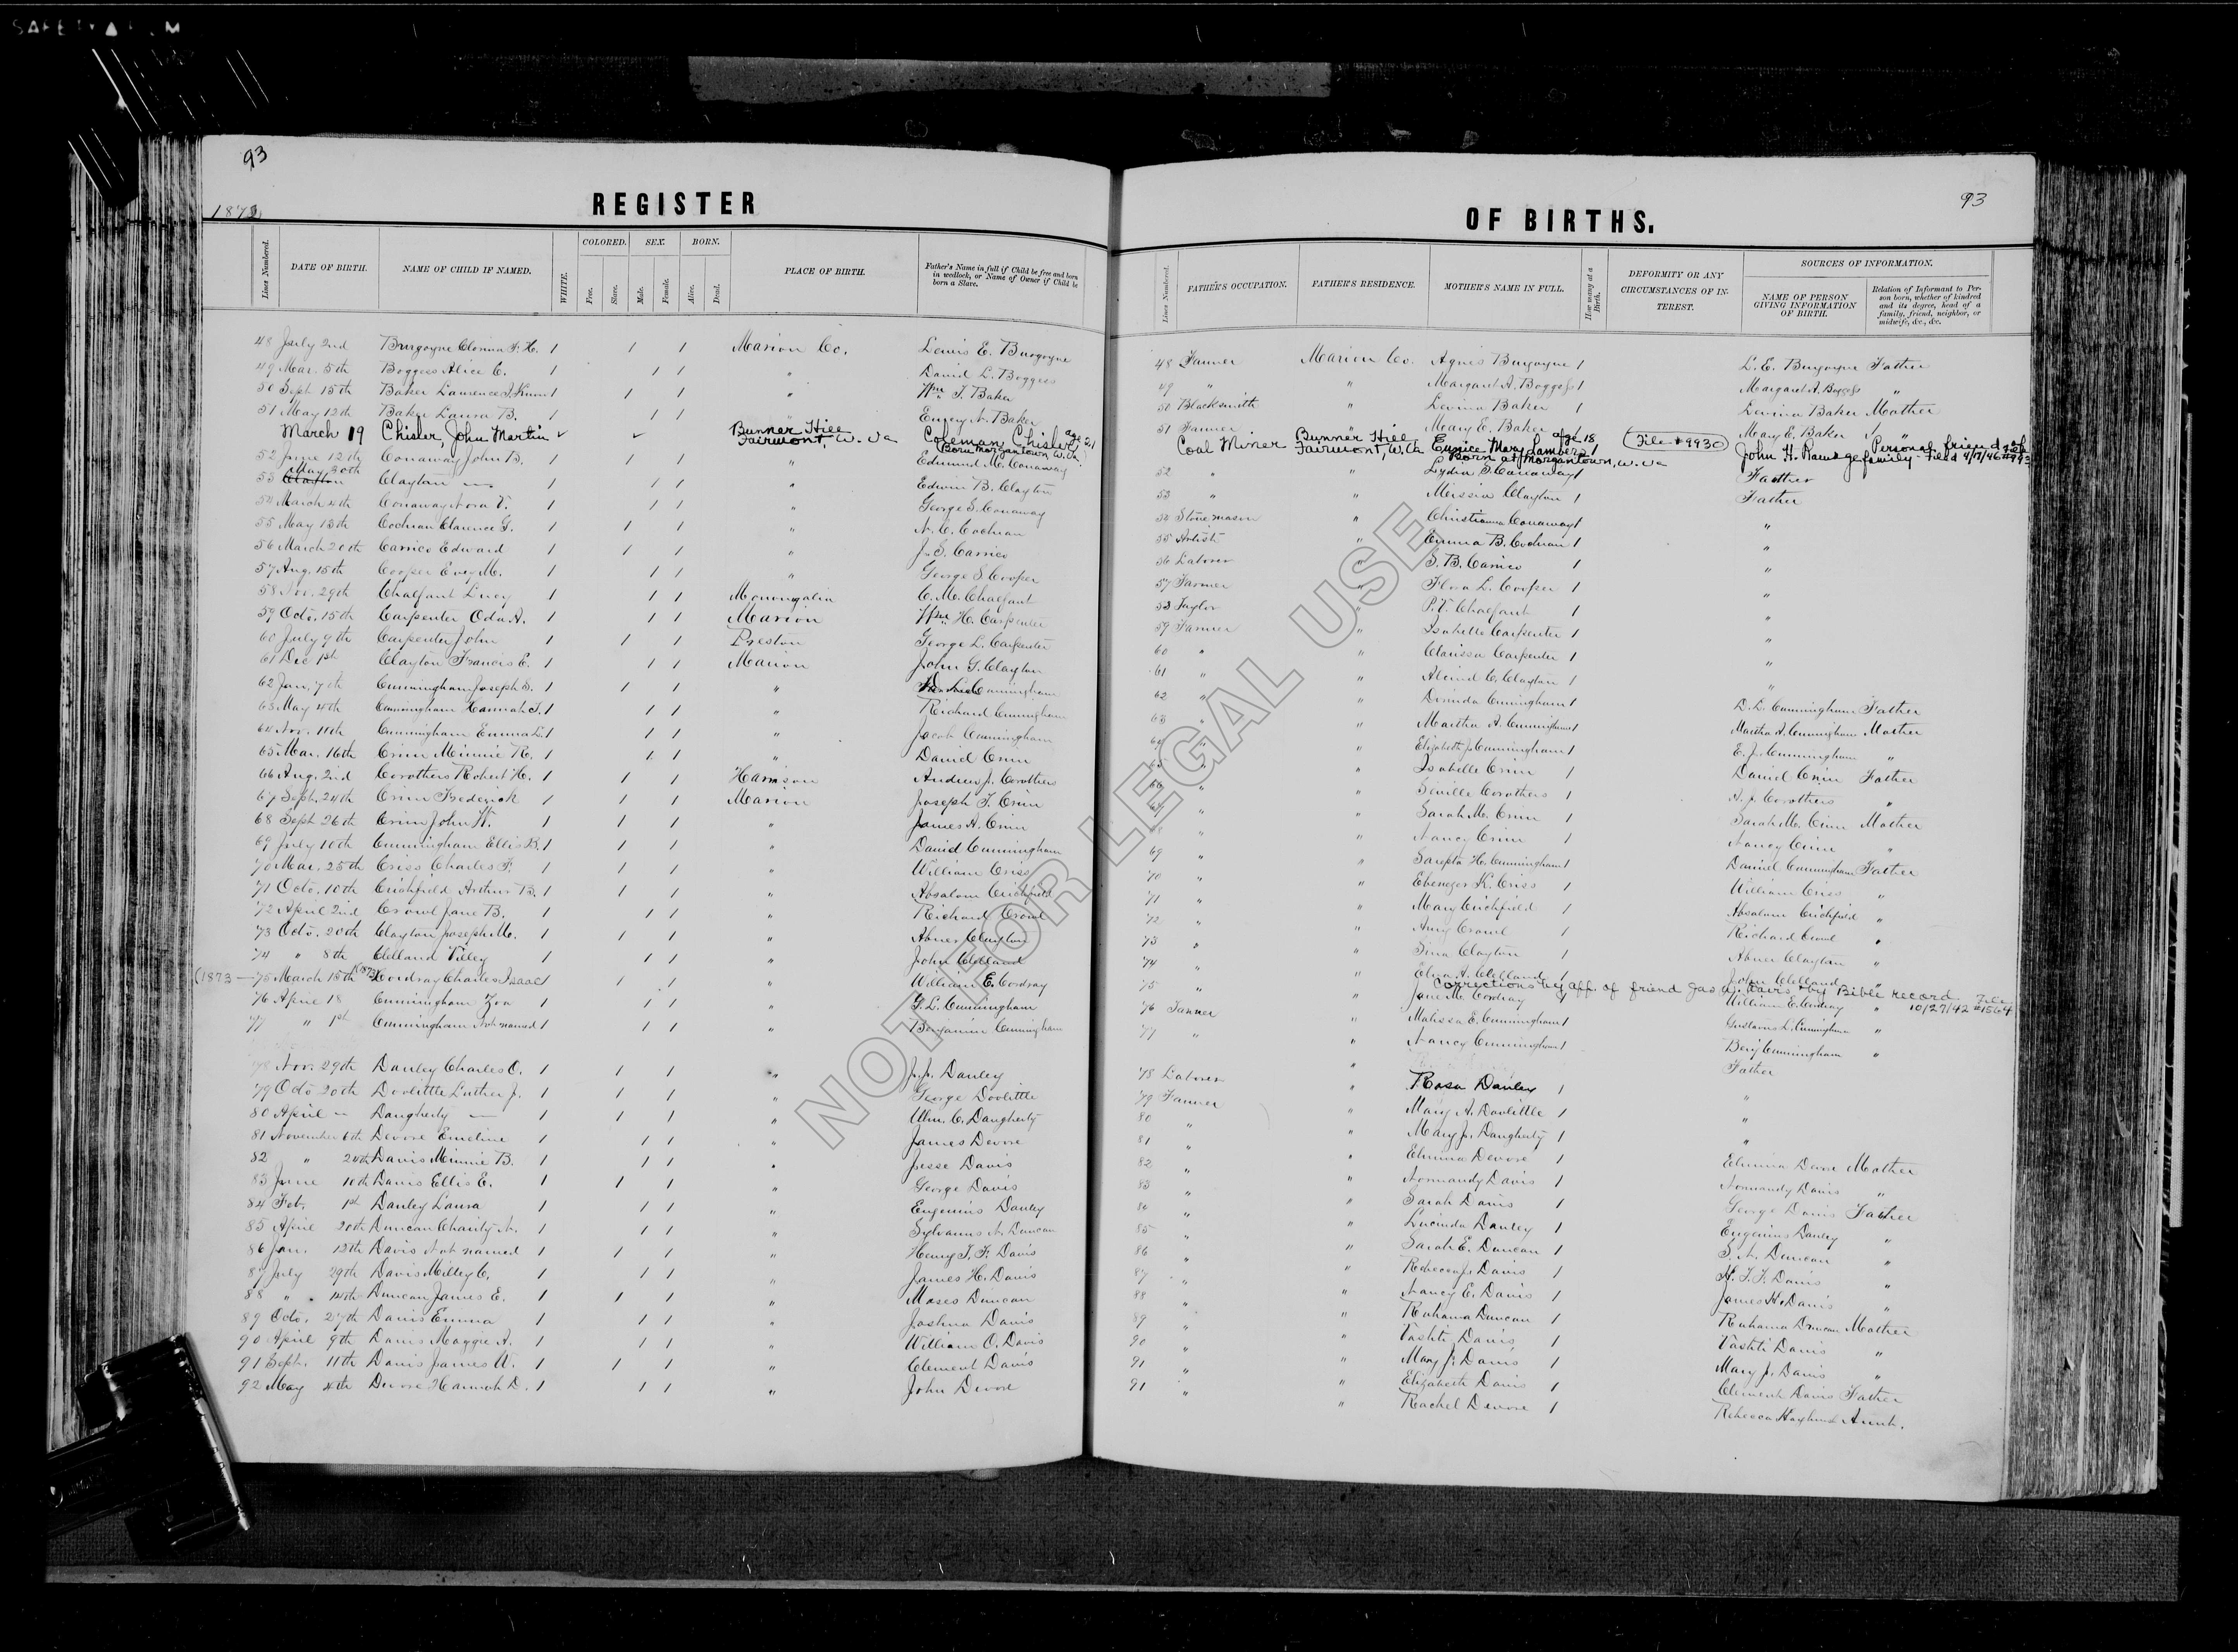 93
1873
REGISTER
Lines Numbered. DATE OF BIRTH. NAME OF CHILD IF NAMED. WHITE. COLORED. Free. Slave. SEX. Male. Female. BORN. Alive. Dead. PLACE OF BIRTH. Father's Name in full if Child be free and born in wedlock, or Name of Owner if Child be born a Slave.
48 July 2nd Burgoyne F. H. 1 1 1 Marion Co. Lewis E. Burgoyne
49 Mar. 5th Boggess Alice C. 1 1 1 " David L. Boggess
50 Sept. 15th Baker Lawrence 1 1 1 " Wm. T. Baker
51 May 12th Baker Laura B. 1 1 1 " N. Baker
March 19 Chisler, John Martin ✓ ✓ Bunner Hill Fairmont, W. Va Coleman Chisler age 21 Born Morgantown W. Va.
52 June 12th Conaway John B. 1 1 1 " Edmund M. Conaway
53 May 30th Clayton — 1 1 1 " Edwin B. Clayton
54 March 4th Conaway Nora V. 1 1 1 " George S. Conaway
55 May 13th Cochran Clarence G. 1 1 1 " N. C. Cochran
56 March 20th Carrico Edward 1 1 1 " J. S. Carrico
57 Aug. 15th Cooper Evey M. 1 1 1 " George S. Cooper
58 Nov. 29th Chalfant Lucy 1 1 1 Monongalia C. M. Chalfant
59 Octo. 15th Carpenter Oda A. 1 1 1 Marion Wm. H. Carpenter
60 July 9th Carpenter John 1 1 1 Preston George L. Carpenter
61 Dec 1st Clayton Francis E. 1 1 1 Marion John G. Clayton
62 Jan. 7th Cunningham Joseph S. 1 1 1 " Cunningham
63 May 4th Cunningham Hannah J. 1 1 1 " Richard Cunningham
64 Nov. 11th Cunningham Emma L. 1 1 1 " Jacob Cunningham
65 Mar. 16th Crim Minnie R. 1 1 1 " David Crim
66 Aug. 2nd Corothers Robert H. 1 1 1 Harrison Andrew J. Corothers
67 Sept. 24th Crim Frederick 1 1 1 Marion Joseph T. Crim
68 Sept 26th Crim John W. 1 1 1 " James A. Crim
69 July 10th Cunningham Ellis B. 1 1 1 " David Cunningham
70 Mar. 25th Criss Charles F. 1 1 1 " William Criss
71 Octo. 10th Crichfield Arthur B. 1 1 1 " Absalom Crichfield
72 April 2nd Crowl Jane B. 1 1 1 " Richard Crowl
73 Octo. 20th Clayton Joseph M. 1 1 1 " Abner Clayton
74 " 8th Clelland 1 1 1 " John Clelland
(1873 — 75 March 15th (1873) Cordray Charles Isaac 1 1 1 " William E. Cordray
76 April 18 Cunningham Zoa 1 1 1 " G. L. Cunningham
77 " 1st Cunningham Not named 1 1 1 " Benjamin Cunningham
78 Nov. 29th Danley Charles O. 1 1 1 " J. J. Danley
79 Octo 20th Doolittle Luther J. 1 1 1 " George Doolittle
80 April — Daugherty — 1 1 1 " Wm. C. Daugherty
81 November 6th Devore Emeline 1 1 1 " James Devore
82 " 24th Davis Minnie B. 1 1 1 " Jesse Davis
83 June 10th Davis Ellis E. 1 1 1 " George Davis
84 Feb. 1st Danley Laura 1 1 1 " Eugenius Danley
85 April 20th Duncan Charity A. 1 1 1 " Sylvanus N. Duncan
86 Jan. 12th Davis Not named 1 1 1 " Henry T. F. Davis
87 July 29th Davis Milley C. 1 1 1 " James H. Davis
88 " 14th Duncan James E. 1 1 1 " Moses Duncan
89 Octo. 27th Davis Emma 1 1 1 " Joshua Davis
90 April 9th Davis Maggie A. 1 1 1 " William O. Davis
91 Sept. 11th Davis James W. 1 1 1 " Clement Davis
92 May 4th Devore Hannah D. 1 1 1 " John Devore
93
OF BIRTHS.
Lines Numbered. FATHER'S OCCUPATION. FATHER'S RESIDENCE. MOTHER'S NAME IN FULL. How many at a Birth. DEFORMITY OR ANY CIRCUMSTANCES OF INTEREST. SOURCES OF INFORMATION. NAME OF PERSON GIVING INFORMATION OF BIRTH. Relation of Informant to Person born, whether of kindred and its degree, head of a family, friend, neighbor, or midwife, &c., &c.
48 Farmer Marion Co. Agnes Burgoyne 1 L. E. Burgoyne Father
49 " " Margaret A. Boggess 1 Margaret A. Boggess "
50 Blacksmith " Levina Baker 1 Levina Baker Mother
51 Farmer " Mary E. Baker 1 Mary E. Baker "
Coal Miner Bunner Hill Fairmont, W. Va Eunice Mary Lambers age 18 1 Born at Morgantown, W. Va (File # 9930) John H. Ramage Personal friend of family - Filed 4/17/46
52 " " Lydia S. Conaway 1 Father
53 " " Missia Clayton 1 Father
54 Stone mason " Christianna Conaway 1 "
55 Artist " Emma B. Cochran 1 "
56 Laborer " S. B. Carrico 1 "
57 Farmer " Flora L. Cooper 1 "
58 Taylor " P. V. Chalfant 1 "
59 Farmer " Isabelle Carpenter 1 "
60 " " Clarissa Carpenter 1 "
61 " " C. Clayton 1 "
62 " " Cunningham 1 D. L. Cunningham Father
63 " " Martha A. Cunningham 1 Martha A. Cunningham Mother
64 " " Elizabeth J. Cunningham 1 E. J. Cunningham "
65 " " Isabelle Crim 1 Daniel Crim Father
66 " " Seville Corothers 1 A. J. Corothers "
67 " " Sarah M. Crim 1 Sarah M. Crim Mother
68 " " Nancy Crim 1 Nancy Crim "
69 " " Sarepta H. Cunningham 1 Daniel Cunningham Father
70 " " Ebenezer K. Criss 1 William Criss "
71 " " Mary Crichfield 1 Absalom Crichfield "
72 " " Amy Crowl 1 Richard Crowl "
73 " " Sina Clayton 1 Abner Clayton "
74 " " Elna A. Clelland 1 John Clelland "
Corrections by aff. of friend Gas W. & by Bible record. File # 1564 10/27/42
75 " " Jane M. Cordray 1 William E. Cordray "
76 Farmer " Malissa E. Cunningham 1 Gustavus L. Cunningham "
77 " " Nancy Cunningham 1 Benj Cunningham "
78 Laborer " Rosa Danley 1 Father
79 Farmer " Mary A. Doolittle 1 "
80 " " Mary J. Daugherty 1 "
81 " " Elmina Devore 1 Elmina Devore Mother
82 " " Normandy Davis 1 Normandy Davis "
83 " " Sarah Davis 1 George Davis Father
84 " " Lucinda Danley 1 Eugenius Danley "
85 " " Sarah E. Duncan 1 S. N. Duncan "
86 " " Rebecca J. Davis 1 H. T. F. Davis "
87 " " Nancy E. Davis 1 James H. Davis "
88 " " Ruhama Duncan 1 Ruhama Duncan Mother
89 " " Vashti Davis 1 Vashti Davis "
90 " " Mary J. Davis 1 Mary J. Davis "
91 " " Elizabeth Davis 1 Clement Davis Father
91 " " Rachel Devore 1 Rebecca Aunt.
NOT FOR LEGAL USE